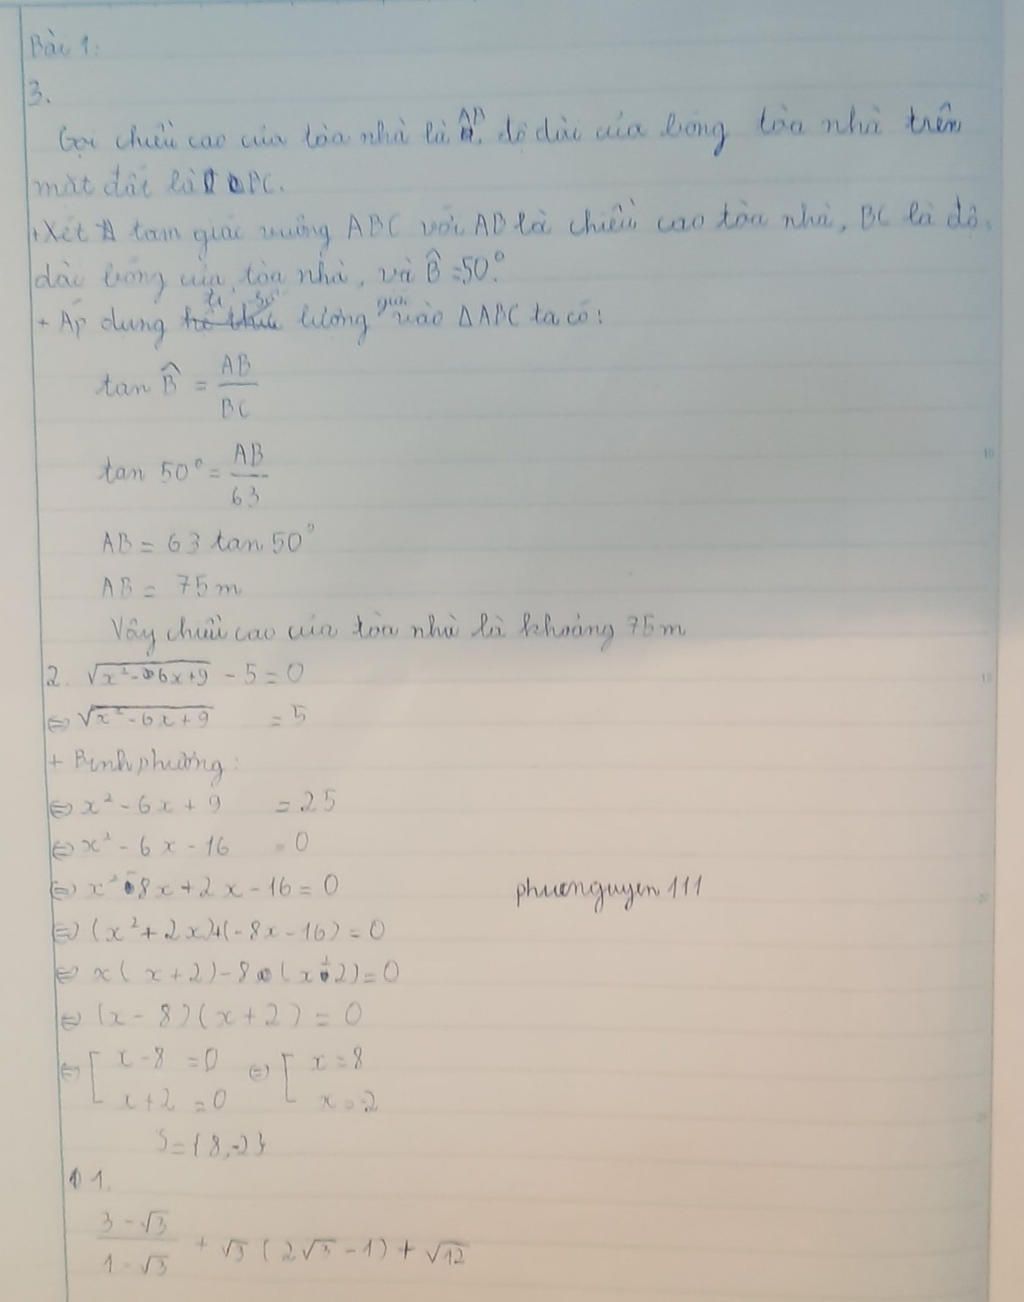 Bài 1:
3.
Gọi chiều cao của tòa nhà là AB, độ dài của bóng tòa nhà trên
mặt đất là BC.
+ Xét tam giác vuông ABC với AB là chiều cao tòa nhà, BC là độ
dài bóng của tòa nhà, và B̂ = 50°.
+ Áp dụng tỉ số lượng giác vào ΔABC ta có:
tan B̂ = AB/BC
tan 50° = AB/63
AB = 63 tan 50°
AB = 75m
Vậy chiều cao của tòa nhà là khoảng 75m
2. √(x² - 6x + 9) - 5 = 0
⇔ √(x² - 6x + 9) = 5
+ Bình phương:
⇔ x² - 6x + 9 = 25
⇔ x² - 6x - 16 = 0
⇔ x² - 8x + 2x - 16 = 0
phuonguyen 111
⇔ (x² + 2x) + (-8x - 16) = 0
⇔ x(x + 2) - 8(x + 2) = 0
⇔ (x - 8)(x + 2) = 0
⇔ [ x - 8 = 0 ⇔ [ x = 8
x + 2 = 0 x = -2
S = {8, -2}
1.
(3 - √3)/(1 - √3) + √3(2√3 - 1) + √12